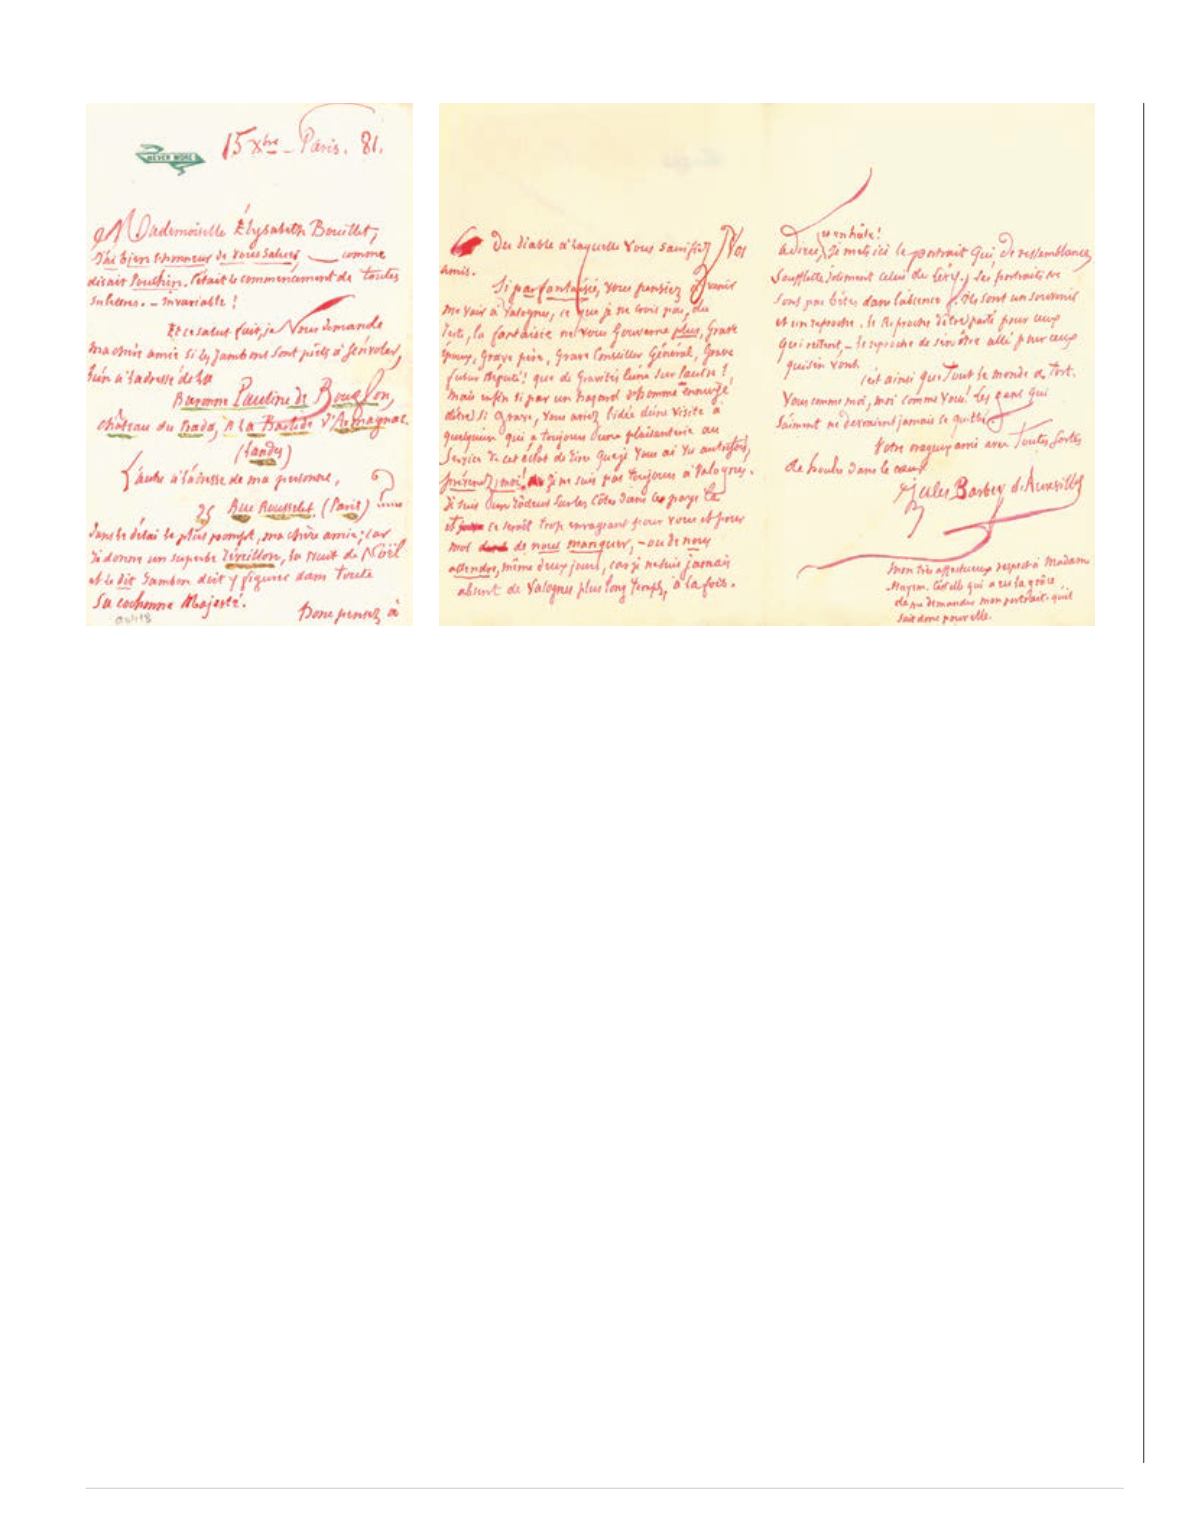 NEVER MORE
15 Xbre – Paris. 81.
Mademoiselle Élysabeth Bouillet,
J'ai bien l'honneur de vous saluer, — comme
disait Souchier. C'était le commencement de toutes
ses lettres. – invariable !
Et ce salut fait, je Vous demande
ma chère amie si les Jambons sont prêts à s'envoler,
l'un à l'adresse de la
Baronne Pauline de Bouglon,
château du Bada, à La Bastide d'Armagnac.
(Landes)
L'autre à l'adresse de ma personne,
25 Rue Rousselet. (Paris)
dans le délai le plus prompt, ma chère amie ; car
je donne un superbe réveillon, la nuit de Noël
et le dit Jambon doit y figurer dans toute
Sa cochonne Majesté.
Donc pensez à
du diable à laquelle vous sacrifiez Vos
amis.
Si par fantaisie, vous pensiez à venir
me voir à Valognes, ce que je ne crois pas, du
reste, la fantaisie ne vous Gouverne plus, Grave
époux, Grave père, Grave Conseiller Général, Grave
futur Député ! que de Gravités l'une sur l'autre !
Mais enfin si par un hazard d'homme ennuyé
d'être si Grave, vous aviez l'idée d'une visite à
quelqu'un qui a toujours d'une plaisanterie au
Service de cet éclat de rire que je vous ai vu autrefois,
prévenez-moi ! je ne suis pas toujours à Valognes.
Je suis un rôdeur sur les côtes dans ce pays là
et ce serait trop enrageant pour vous et pour
moi de nous manquer, – ou de nous
attendre, même deux jours, car je ne suis jamais
absent de Valognes plus long temps, à la fois.
en hâte !
adieu, Je mets ici le portrait qui, de ressemblance,
Soufflette joliment celui de Léry. Les portraits ne
sont pas bêtes dans l'absence. Ils sont un souvenir
et un reproche. le Reproche d'être parti pour ceux
qui restent, – le reproche de s'en être allé pour ceux
qui s'en vont.
C'est ainsi que tout le monde a tort.
Vous comme moi, moi comme vous ! Les gens qui
s'aiment ne devraient jamais se quitter
Votre ami avec toutes sortes
de houles dans le cœur
Jules Barbey d'Aurevilly
Mon très affectueux respect à Madame
Hayem. C'est elle qui a eu la grâce
de me demander mon portrait. qu'il
soit donc pour elle.